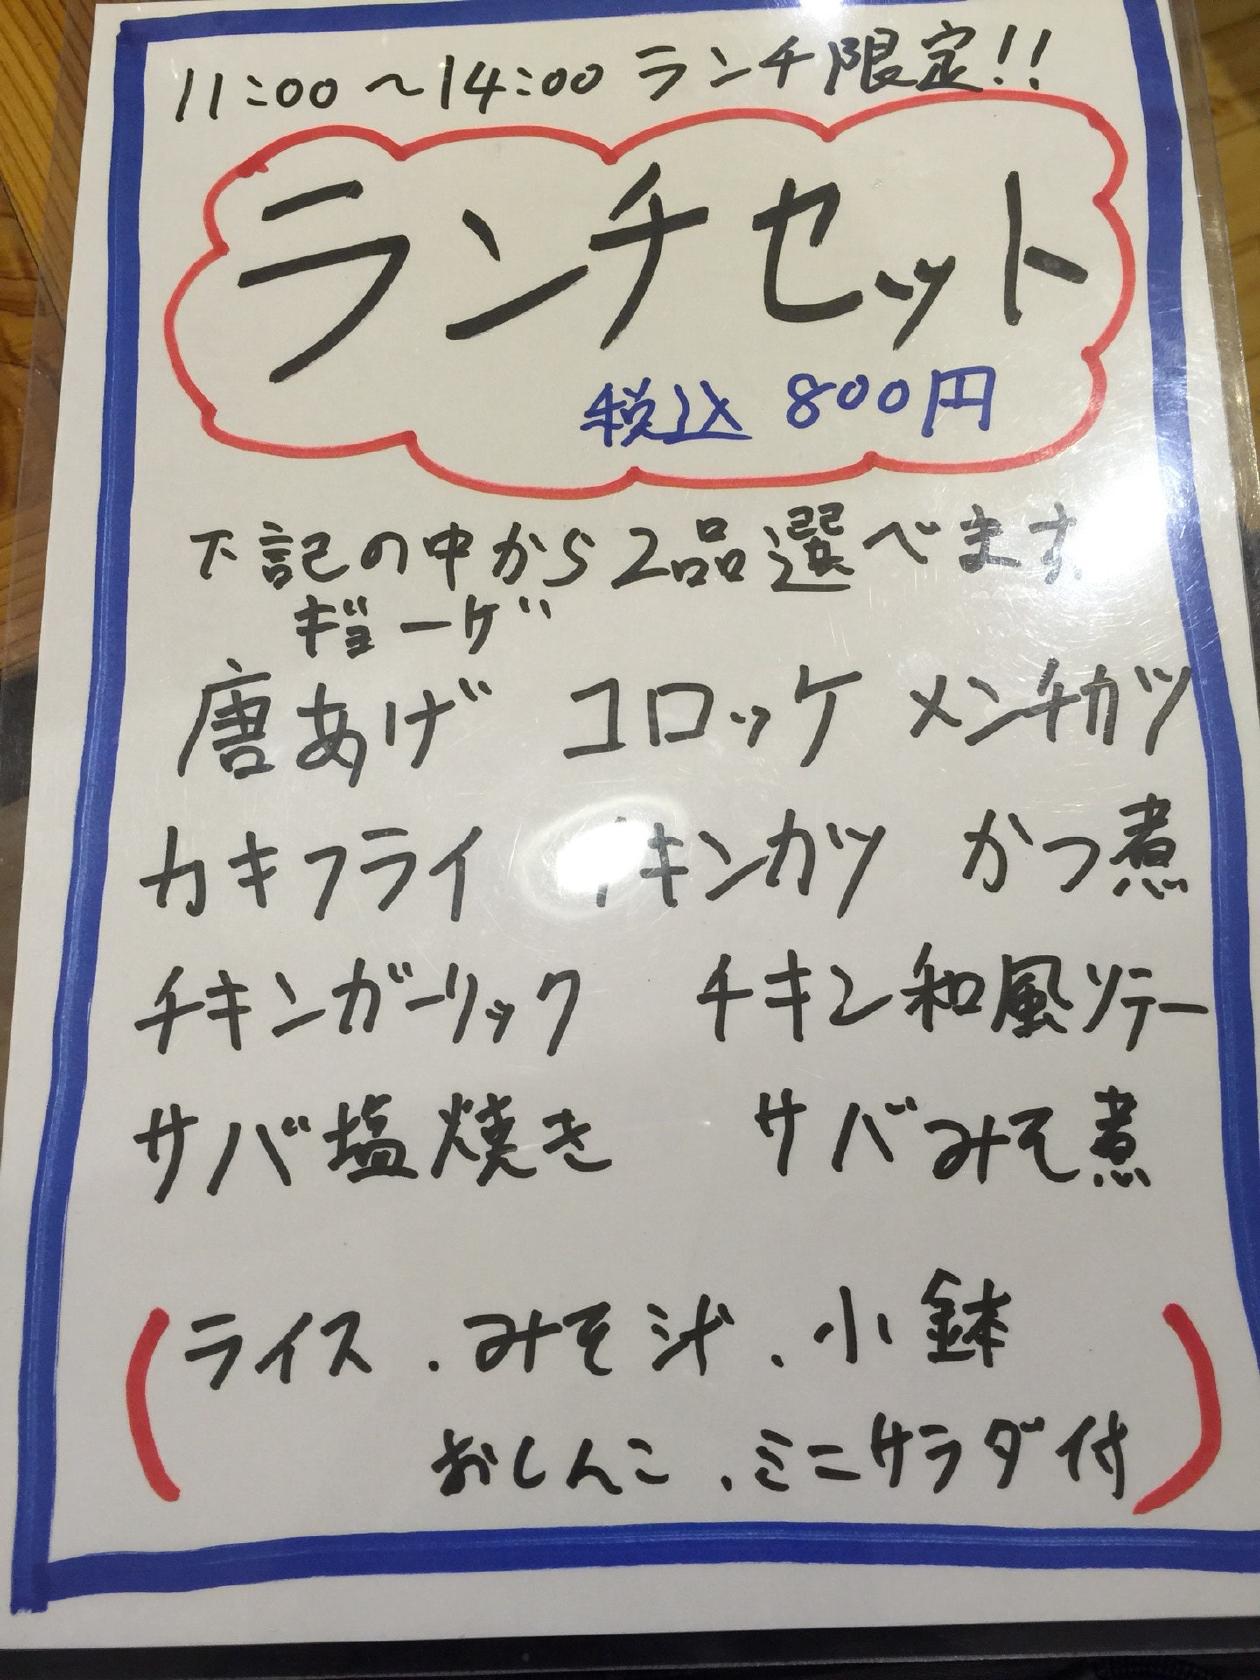 11:00～14:00 ランチ限定!!
ランチセット
税込 800円
下記の中から2品選べます
ギョーザ
唐あげ コロッケ メンチカツ
カキフライ チキンカツ かつ煮
チキンガーリック チキン和風ソテー
サバ塩焼き サバみそ煮
(ライス.みそ汁.小鉢
おしんこ.ミニサラダ付)